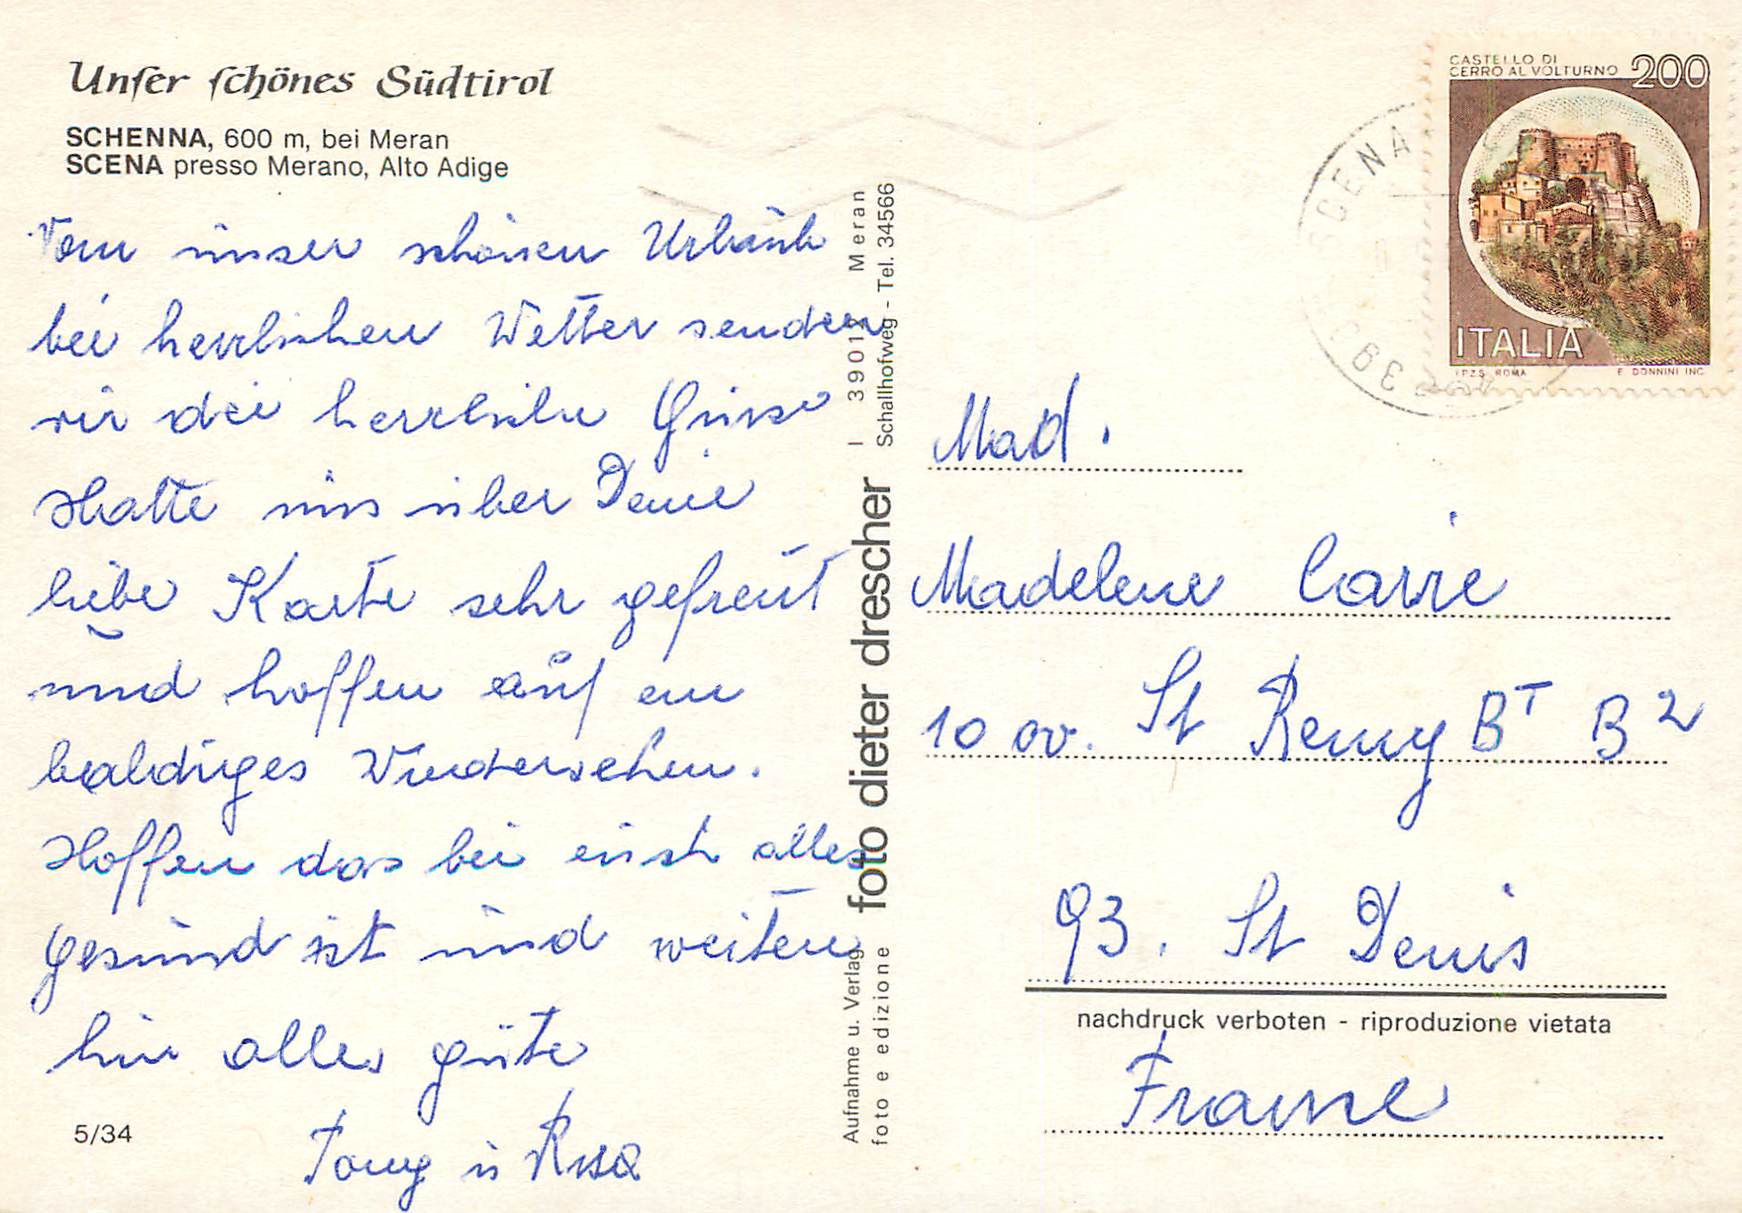 Unser schönes Südtirol
SCHENNA, 600 m, bei Meran
SCENA presso Merano, Alto Adige
Vom unser schönen Urlaub
bei herrlichen Wetter senden
wir die herzliche Grüsse
Hatte uns über Deine
liebe Karte sehr gefreut
und hoffen auf ein
baldiges Wiedersehen.
Hoffen das bei euch alles
gesund ist und weiten
hin alles gute
Tony u Rosa
5/34
Aufnahme u. Verlag
foto e edizione
foto dieter drescher
I 39017 Meran
Schallhofweg - Tel. 34566
CASTELLO DI
CERRO AL VOLTURNO 200
ITALIA
I.P.Z.S. ROMA E. DONNINI INC.
SCENA
Mad.
Madelene Carre
10 av. St Remy BT B2
93. St Denis
nachdruck verboten - riproduzione vietata
France